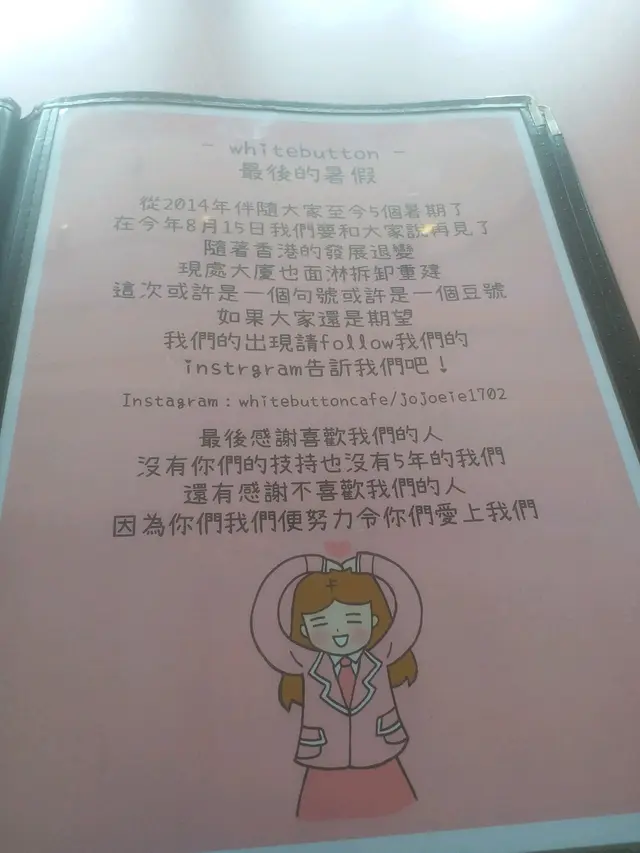 - whitebutton -
最後的暑假
從2014年伴隨大家至今5個暑期了
在今年8月15日我們要和大家說再見了
隨著香港的發展退變
現處大廈也面淋拆卸重建
這次或許是一個句號或許是一個豆號
如果大家還是期望
我們的出現請follow我們的
instrgram告訴我們吧！
Instagram：whitebuttoncafe/jojoeie1702
最後感謝喜歡我們的人
沒有你們的技持也沒有5年的我們
還有感謝不喜歡我們的人
因為你們我們便努力令你們愛上我們